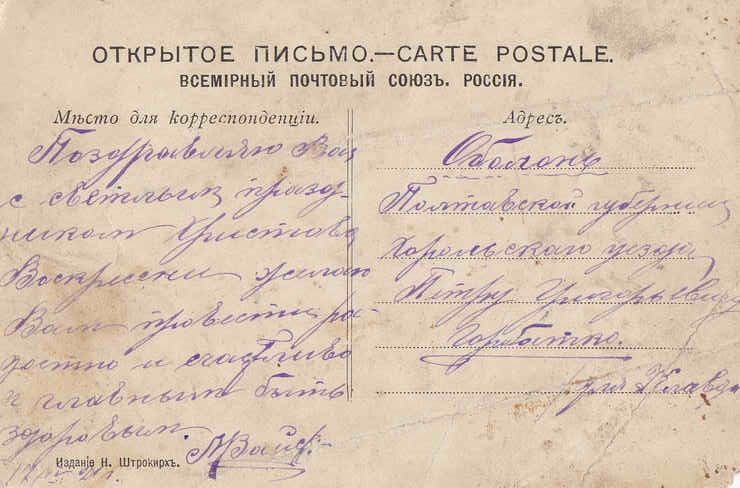 ОТКРЫТОЕ ПИСЬМО.—CARTE POSTALE.
ВСЕМІРНЫЙ ПОЧТОВЫЙ СОЮЗЪ. РОССІЯ.
Мѣсто для корреспонденціи.
Поздравляю Вас
с светлым празд-
ником Христова
Воскресени желаю
Вам провести ра-
достно и счастливо
и главным быть
здоровым.
Изданіе Н. Штрокирхъ.
Адресъ.
Оболонь
Полтавской губернии
Хорольскаго уезда
Петру Григорьевичу
Горбатко.
для Клавди